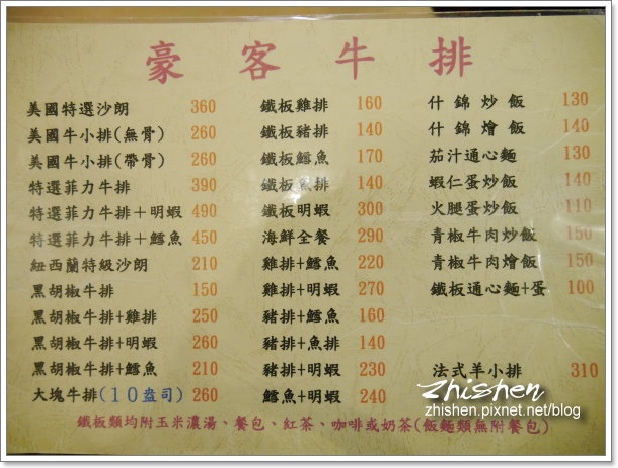 豪客牛排
美國特選沙朗 360
美國牛小排(無骨) 260
美國牛小排(帶骨) 260
特選菲力牛排 390
特選菲力牛排+明蝦 490
特選菲力牛排+鱈魚 450
紐西蘭特級沙朗 210
黑胡椒牛排 150
黑胡椒牛排+雞排 250
黑胡椒牛排+明蝦 260
黑胡椒牛排+鱈魚 210
大塊牛排(10盎司) 260
鐵板雞排 160
鐵板豬排 140
鐵板鱈魚 170
鐵板魚排 140
鐵板明蝦 300
海鮮全餐 290
雞排+鱈魚 220
雞排+明蝦 270
豬排+鱈魚 160
豬排+魚排 140
豬排+明蝦 230
鱈魚+明蝦 240
什錦炒飯 130
什錦燴飯 140
茄汁通心麵 130
蝦仁蛋炒飯 140
火腿蛋炒飯 110
青椒牛肉炒飯 150
青椒牛肉燴飯 150
鐵板通心麵+蛋 100
法式羊小排 310
鐵板類均附玉米濃湯、餐包、紅茶、咖啡或奶茶(飯麵類無附餐包)
Zhishen
zhishen.pixnet.net/blog